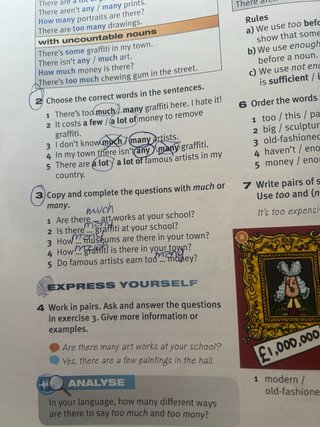 There aren't any / many prints.
How many portraits are there?
There are too many drawings.
with uncountable nouns
There's some graffiti in my town.
There isn't any / much art.
How much money is there?
There's too much chewing gum in the street.
2 Choose the correct words in the sentences.
1 There's too much / many graffiti here. I hate it!
2 It costs a few / a lot of money to remove
graffiti.
3 I don't know much / many artists.
4 In my town there isn't any / many graffiti.
5 There are a lot / a lot of famous artists in my
country.
3 Copy and complete the questions with much or
many.
much
1 Are there ... art works at your school?
many
2 Is there ... graffiti at your school?
many
3 How ... museums are there in your town?
4 How ... graffiti is there in your town?
many
5 Do famous artists earn too ... money?
EXPRESS YOURSELF
4 Work in pairs. Ask and answer the questions
in exercise 3. Give more information or
examples.
Are there many art works at your school?
Yes, there are a few paintings in the hall.
ANALYSE
In your language, how many different ways
are there to say too much and too many?
Rules
a) We use too befo
show that some
b) We use enough
before a noun.
c) We use not eno
is sufficient / i
6 Order the words
1 too / this / pa
2 big / sculptur
3 old-fashioned
4 haven't / eno
5 money / enou
7 Write pairs of s
Use too and (n
It's too expensi
£1,000,000
1 modern /
old-fashione